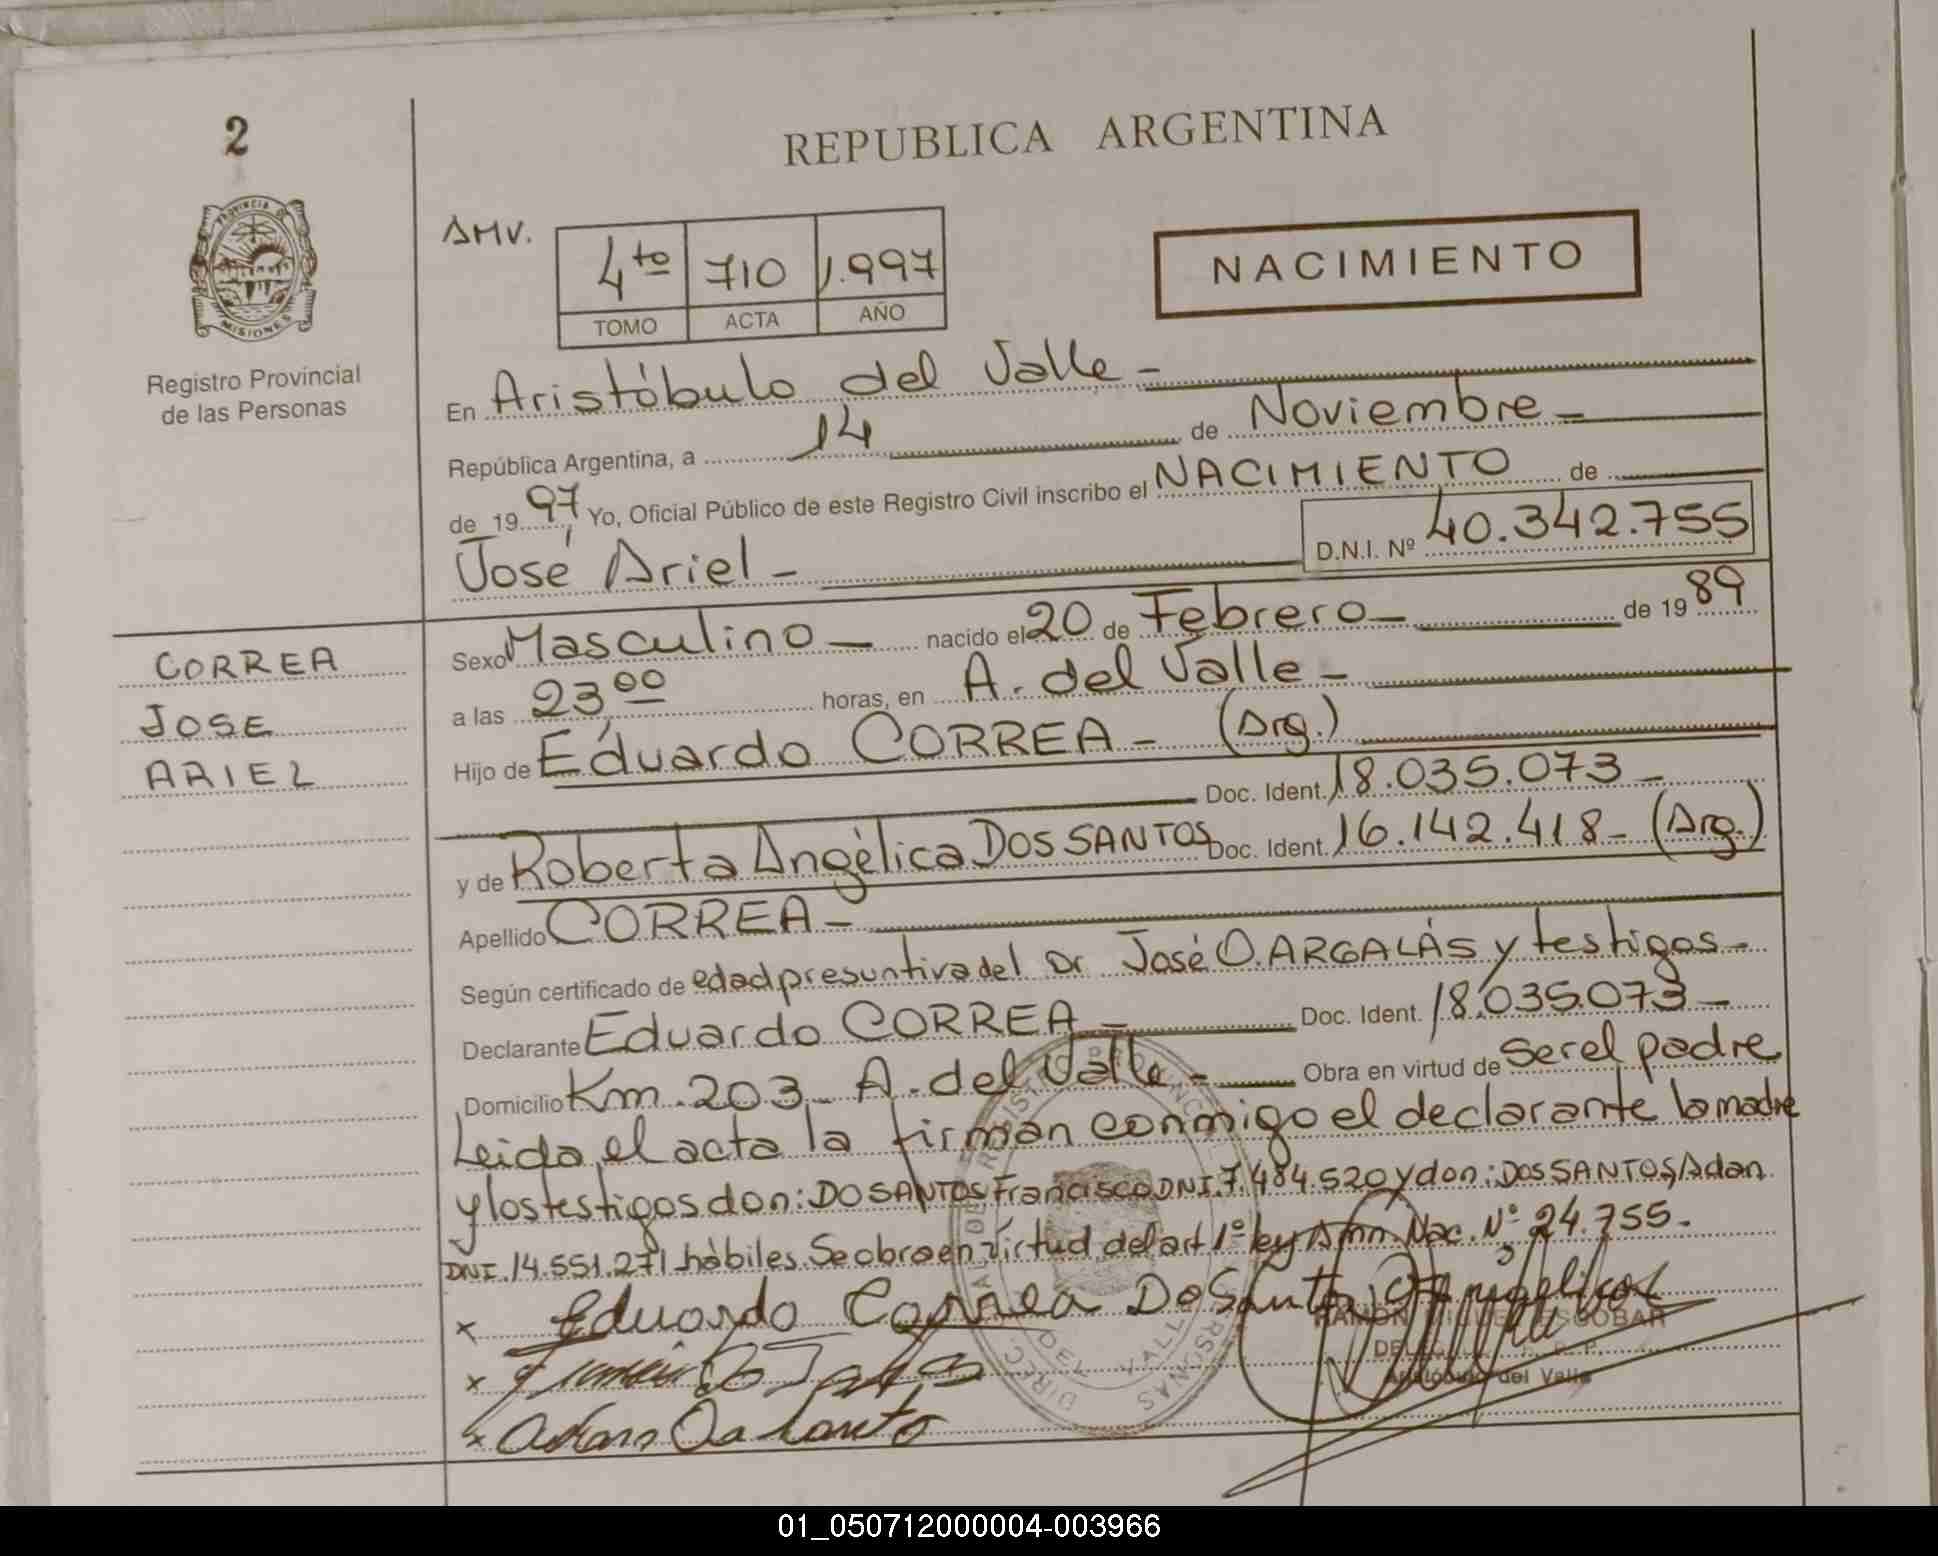 2
PROVINCIA DE
MISIONES
Registro Provincial
de las Personas
REPUBLICA ARGENTINA
AMV.
4to 710 1.997
TOMO ACTA AÑO
NACIMIENTO
En Aristóbulo del Valle -
República Argentina, a 14 de Noviembre -
de 1997, Yo, Oficial Público de este Registro Civil inscribo el NACIMIENTO de
José Ariel - D.N.I. Nº 40.342.755
CORREA
JOSE
ARIEL
Sexo Masculino - nacido el 20 de Febrero - de 1989
a las 23,00 horas, en A. del Valle -
Hijo de Eduardo CORREA - (Arg.)
Doc. Ident. 18.035.073 -
y de Roberta Angélica DOS SANTOS Doc. Ident. 16.142.418 - (Arg.)
Apellido CORREA -
Según certificado de edad presuntiva del Dr José O. ARGALÁS y testigos -
Declarante Eduardo CORREA - Doc. Ident. 18.035.073 -
Domicilio Km. 203 - A. del Valle - Obra en virtud de ser el padre
Leida el acta la firman conmigo el declarante la madre
y los testigos don: DO SANTOS Francisco DNI. 7.484.520 y don: DOS SANTOS, Adan
DNI. 14.551.271 hábiles. Se obra en virtud del art 1º ley Amn. Nac. Nº 24.755 -
x Eduardo Correa Do Santo Angelica
RAMON MIGUEL ESCOBAR
x
Aristóbulo del Valle
x
01_050712000004-003966